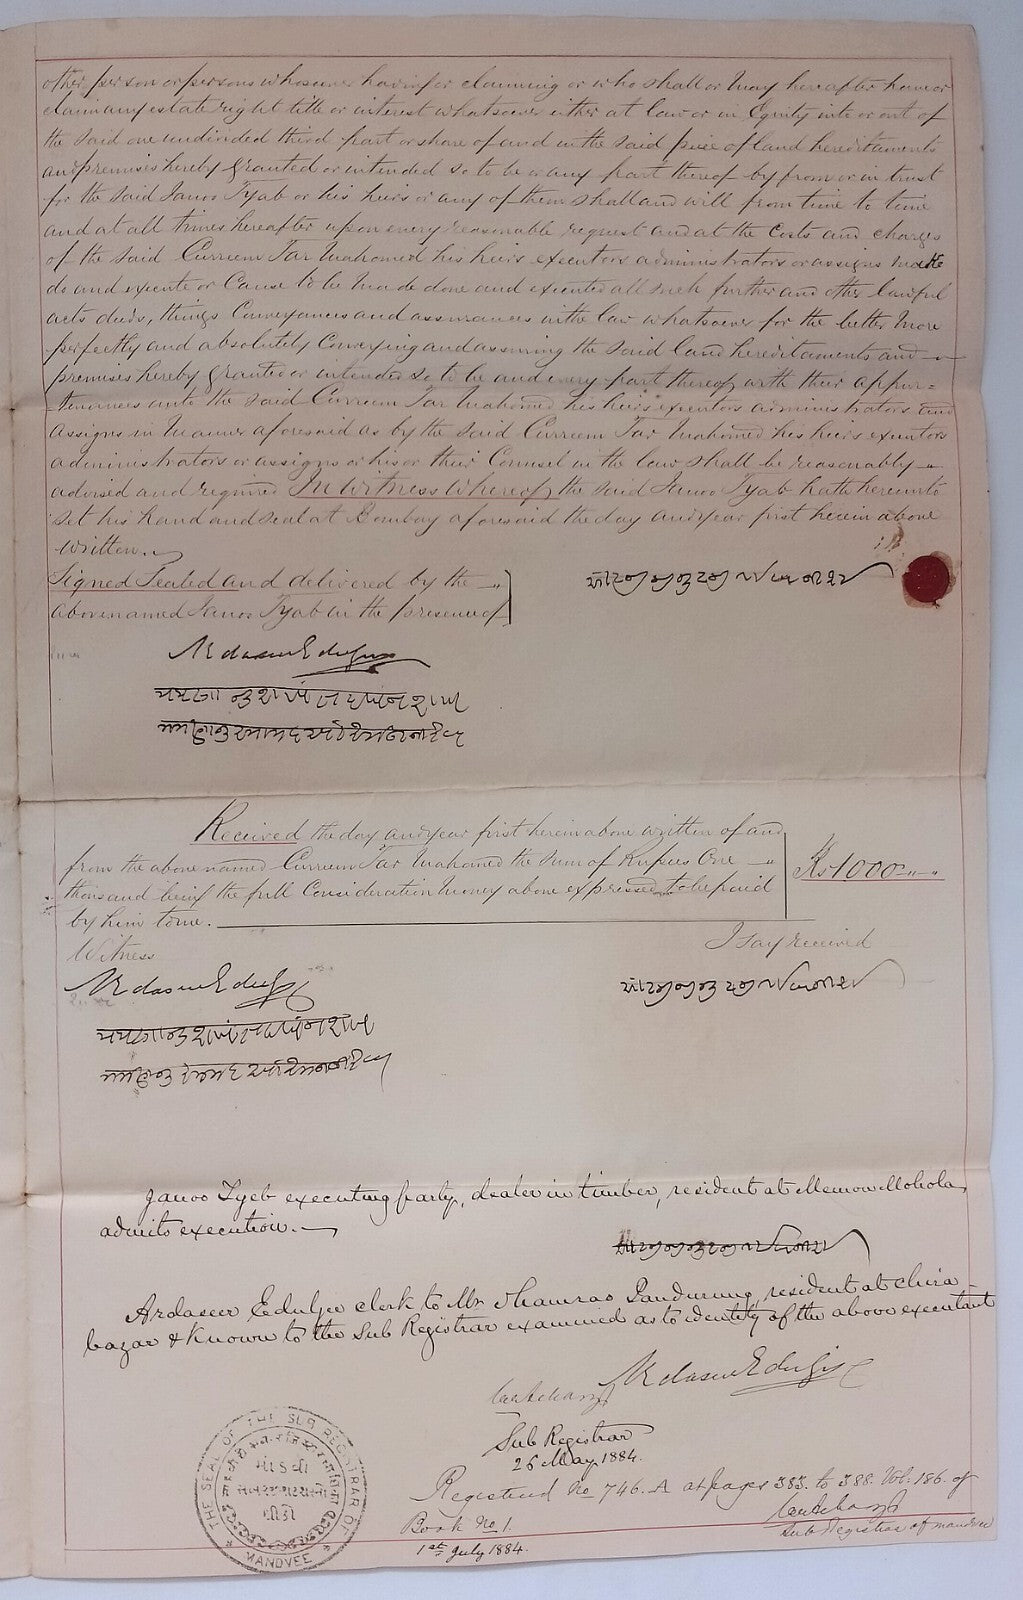 other person or persons whosoever having or claiming or who shall or may hereafter have or
claim any estate right title or interest whatsoever either at law or in Equity into or out of
the said one undivided third part or share of and in the said piece of land hereditaments
and premises hereby granted or intended so to be or any part thereof by from or in trust
for the said Janoo Tyab or his heirs or any of them shall and will from time to time
and at all times hereafter upon every reasonable request and at the costs and charges
of the said Curreem Jar Mahomed his heirs executors administrators or assigns make
do and execute or Cause to be made done and executed all such further and other lawful
acts deeds, things Conveyances and assurances in the law whatsoever for the better more
perfectly and absolutely Conveying and assuring the said land hereditaments and
premises hereby granted or intended so to be and every part thereof with their appur=
tenances unto the said Curreem Jar Mahomed his heirs executors administrators and
assigns in Manner aforesaid as by the said Curreem Jar Mahomed his heirs executors
administrators or assigns or his or their Counsel in the law shall be reasonably
advised and required In Witness Whereof the said Janoo Tyab hath hereunto
set his hand and seal at Bombay aforesaid the day and year first herein above
written.
Signed Sealed and delivered by the
abovenamed Janoo Tyab in the presence of
Ardaseer Eduljee
Received the day and year first herein above written of and
from the above named Curreem Jar Mahomed the Sum of Rupees One
thousand being the full Consideration Money above expressed to be paid
by him to me.
Rs 1000
Witness
I say received
Ardaseer Eduljee
Janoo Tyeb executing party, dealer in timber, resident at Memon Mohola
admits execution.
Ardaseer Eduljee clerk to Mr Shamrao Pandurung, resident at China
bazar & Known to the Sub Registrar examined as to identity of the above executant
Ardaseer Eduljee
Sub Registrar
26 May 1884.
Registered No 746. A at pages 383 to 388 Vol. 186. of
Book No 1.
Sub Registrar of Mandvee
1st July 1884.
THE SEAL OF THE SUB REGISTRAR OF
MANDVEE